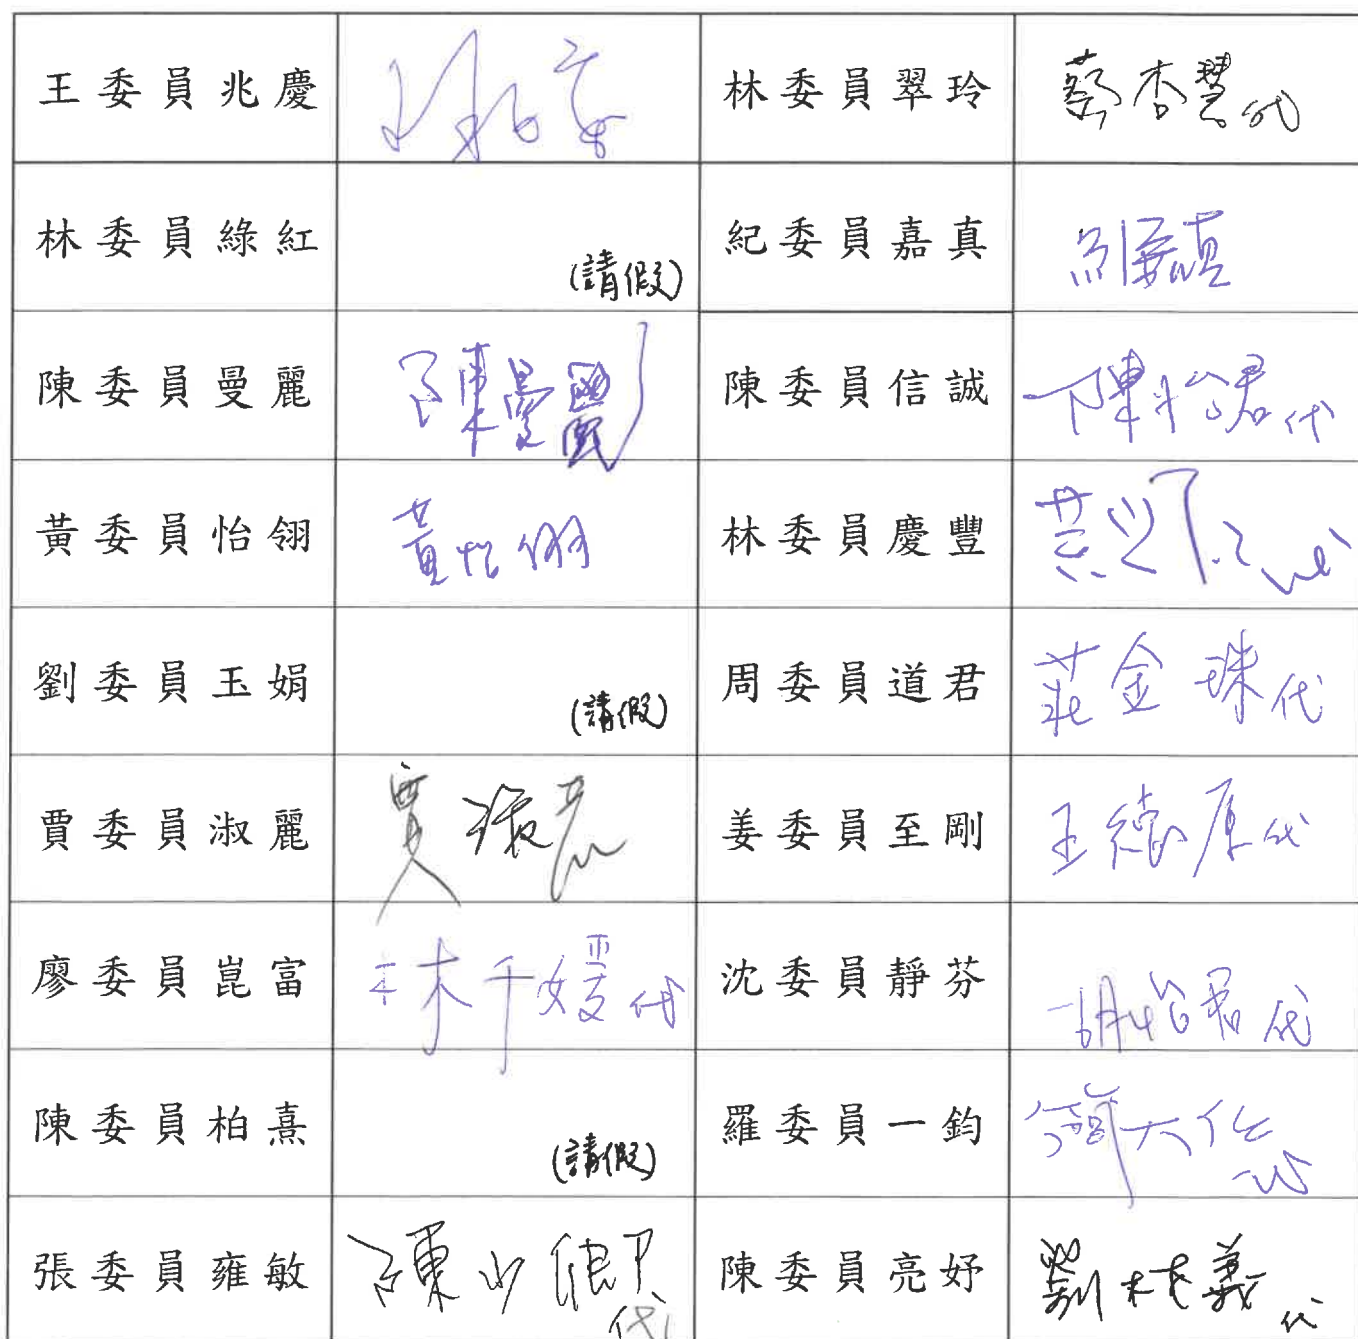 王委員兆慶 林委員翠玲 蔡杏慧代
林委員綠紅 (請假) 紀委員嘉真 紀嘉真
陳委員曼麗 陳曼麗 陳委員信誠 陳怡君代
黃委員怡翎 黃怡翎 林委員慶豐
劉委員玉娟 (請假) 周委員道君 莊金珠代
賈委員淑麗 賈淑麗 姜委員至剛 王德原代
廖委員崑富 林千媛代 沈委員靜芬 胡怡君代
陳委員柏熹 (請假) 羅委員一鈞
張委員雍敏 陳 代 陳委員亮妤 劉 義代